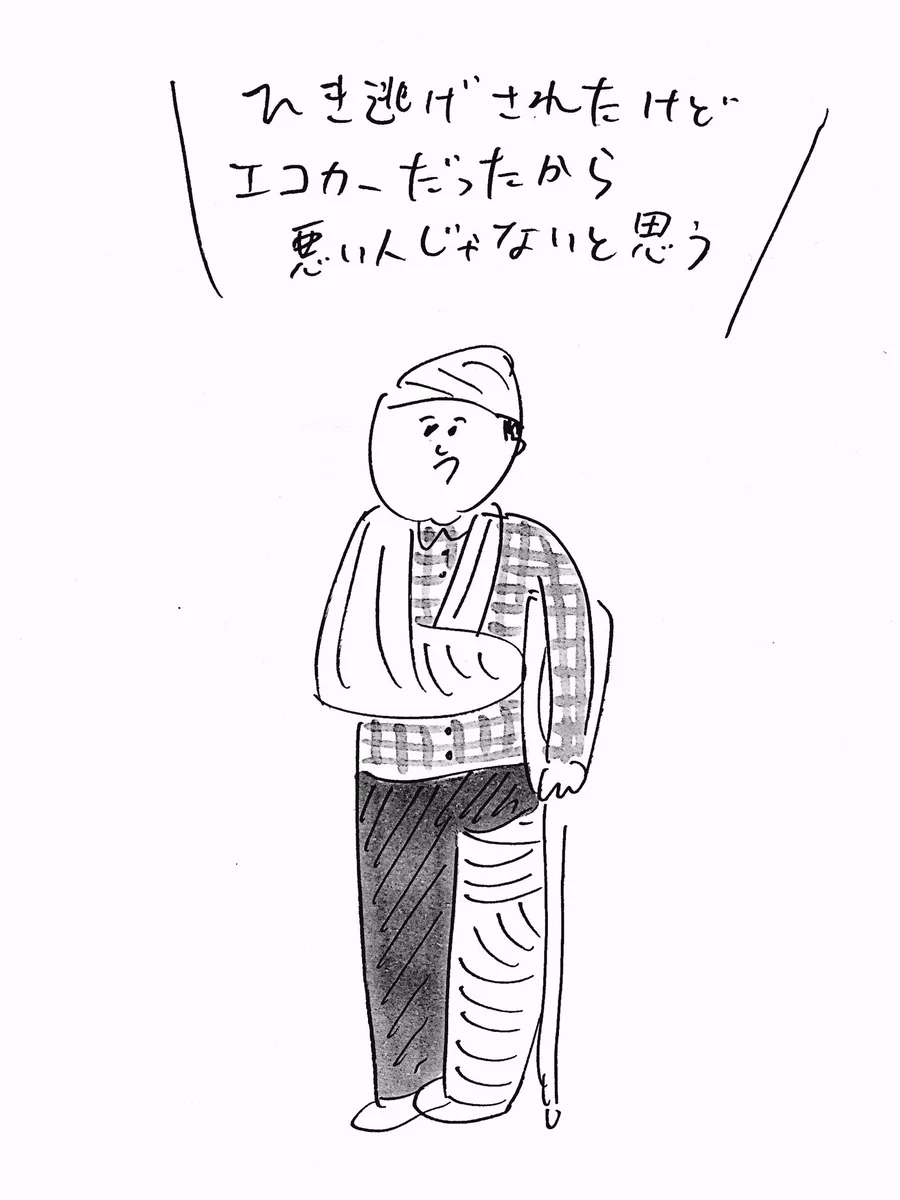 ひき逃げされたけど
エコカーだったから
悪い人じゃないと思う